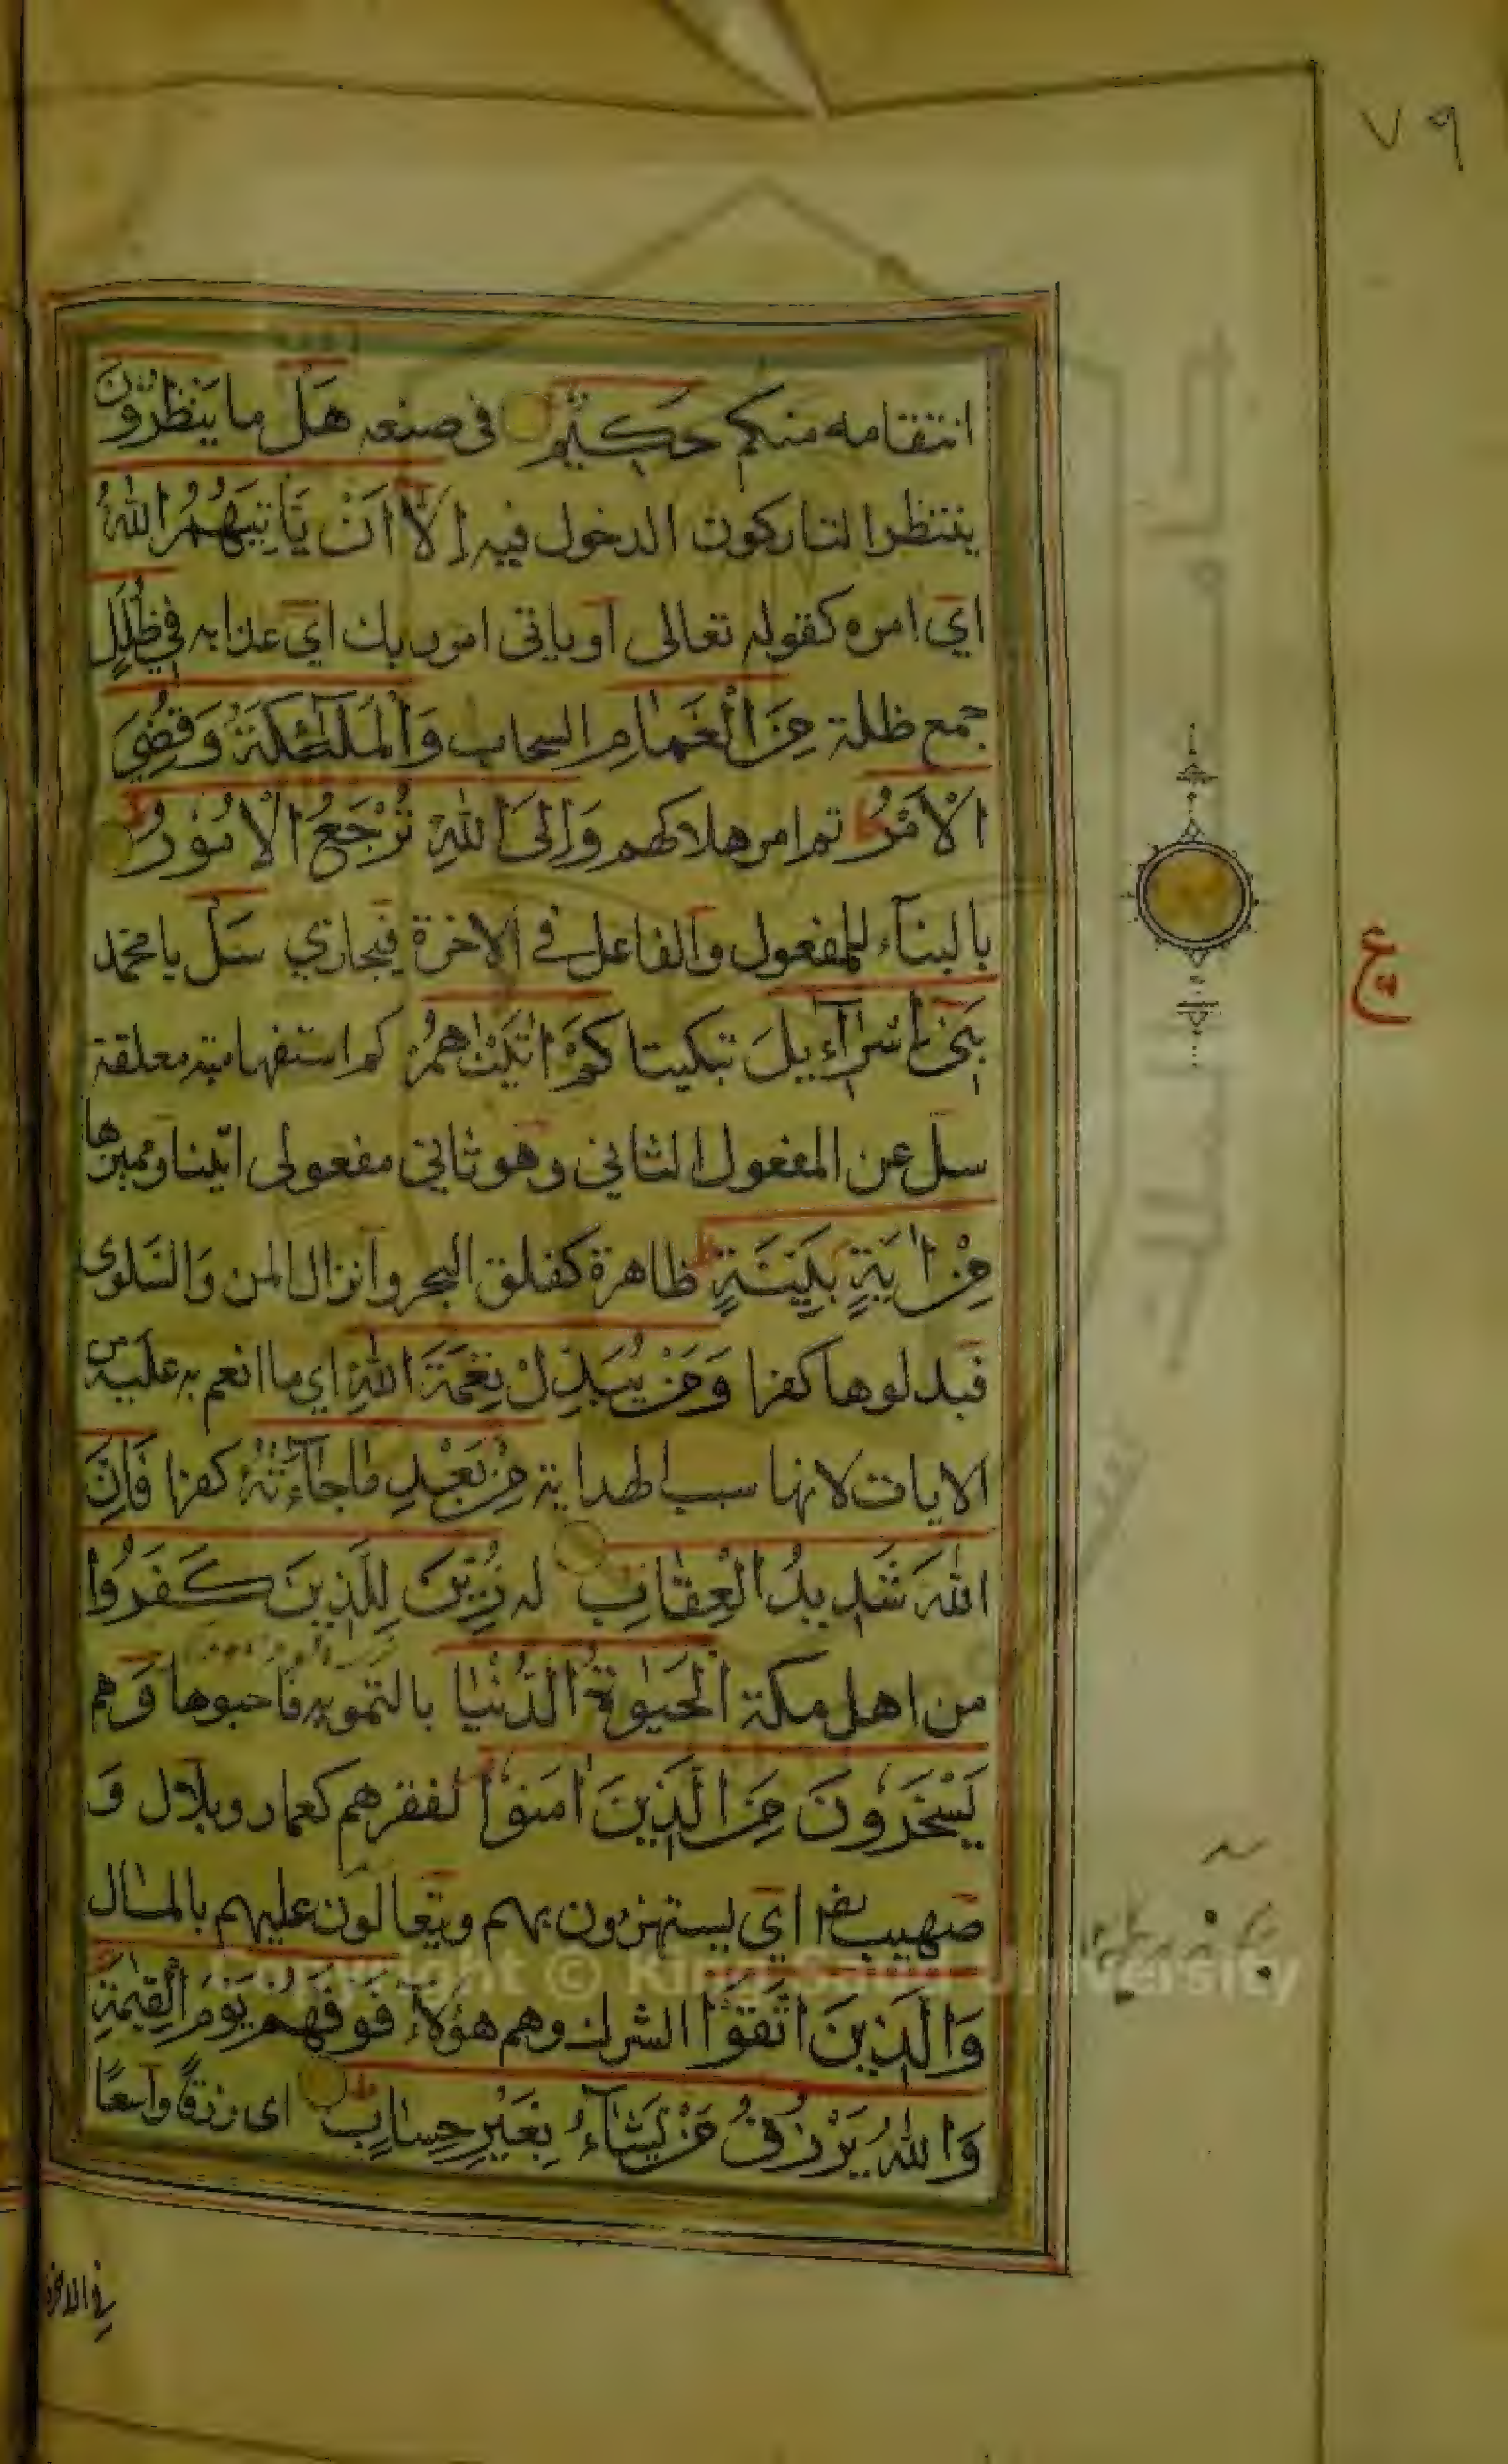 ٧٩
انتقامه منكم حَكِيْمٌ في صنعه هَلْ ما يَنْظُرُوْنَ
ينتظر التاركون الدخول فيه اِلَّا اَنْ يَّاْتِيَهُمُ اللّٰهُ
اي امره كقوله تعالى او ياتى امر ربك اي عذابه فِيْ ظُلَلٍ
جمع ظلة مِنَ الْغَمَامِ السحاب وَالْمَلٰٓئِكَةُ وَقُضِيَ
الْاَمْرُ تم امر هلاكهم وَاِلَى اللّٰهِ تُرْجَعُ الْاُمُوْرُ
بالبناء للمفعول والفاعل في الاخرة فيجازي سَلْ يا محمد
بَنِيْ اِسْرَآءِيْلَ تبكيتا كَمْ اٰتَيْنٰهُمْ كم استفهامية معلقة
سل عن المفعول الثاني وهو ثاني مفعولى اتينا ومميزها
مِنْ اٰيَةٍ بَيِّنَةٍ ظاهرة كفلق البحر وانزال المن والسلوى
فبدلوها كفرا وَمَنْ يُّبَدِّلْ نِعْمَةَ اللّٰهِ اي ما انعم به عليه من
الايات لانها سبب الهداية مِنْ بَعْدِ مَا جَآءَتْهُ كفرا فَاِنَّ
اللّٰهَ شَدِيْدُ الْعِقَابِ له زُيِّنَ لِلَّذِيْنَ كَفَرُوْا
من اهل مكة الْحَيٰوةُ الدُّنْيَا بالتمويه فاحبوها وَهم
يَسْخَرُوْنَ مِنَ الَّذِيْنَ اٰمَنُوْا لفقرهم كعمار وبلال و
صهيب اي يستهزون بهم ويتعالون عليهم بالمال
وَالَّذِيْنَ اتَّقَوْا الشرك وهم هؤلاء فَوْقَهُمْ يَوْمَ الْقِيٰمَةِ
وَاللّٰهُ يَرْزُقُ مَنْ يَّشَآءُ بِغَيْرِ حِسَابٍ اى رزقا واسعا
في الاخرة
ع
Copyright © King Saud University